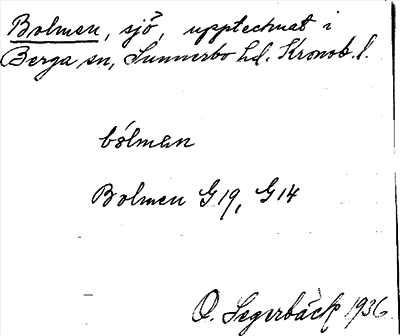 Bolmen, sjö, upptecknat i
Berga sn, Sunnerbo hd. Kronob. l.
bólman
Bolmen G19, G14
O. Segerbäck 1936